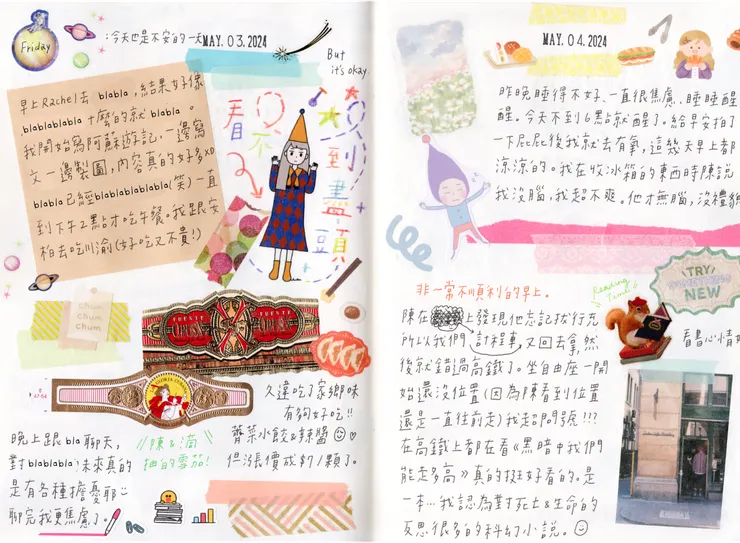 Friday
:今天也是不安的一天
MAY. 03.2024
But
it's okay.
早上Rachel去 blabla,結果好像
blablablabla什麼的就 blabla。
我開始寫阿蘇遊記,一邊寫
文一邊製圖,內容真的好多XD
blabla已經blablablablabla(笑)一直
到下午2點才吃午餐。我跟安
柏去吃川渝(好吃又不貴!)
看不到盡頭
chum
chum
chum
FUENTE
FUENTE
久違吃了家鄉味
有夠好吃!!
薺菜小餃&辣醬
但漲價成$71顆了。
晚上跟 bla 聊天,
對blablabla未來真的
是有各種擔憂耶
聊完我更焦慮了。
陳&滿
抽的雪茄!
MAY. 04.2024
昨晚睡得不好、一直很焦慮、睡睡醒
醒。今天不到6點就醒了。給早安拍了
一下屁屁後我就去有氧,這幾天早上都
涼涼的。我在收冰箱的東西時陳說
我沒腦,我超不爽。他才無腦,沒禮貌
非~常不順利的早上。
Reading
Time!
TRY
NEW
陳在上發現他忘記拔行充
所以我們計程車又回去拿,然
後就錯過高鐵了。坐自由座一開
始還沒位置(因為陳看到位置
還是一直往前走)我超問號!!!
在高鐵上都在看《黑暗中我們
能走多高》真的挺好看的。是
一本…我認為對死亡&生命的
反思很多的科幻小說。
看書心情好